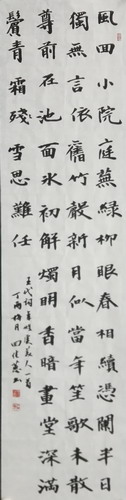 風回小院庭蕪綠柳眼春相續憑闌半日
獨無言依舊竹聲新月似當年笙歌未散
尊前在池面冰初解燭明香暗畫堂深滿
鬢青霜殘雪思難任
五代詞李煜虞美人一首
丁酉梅月田佳